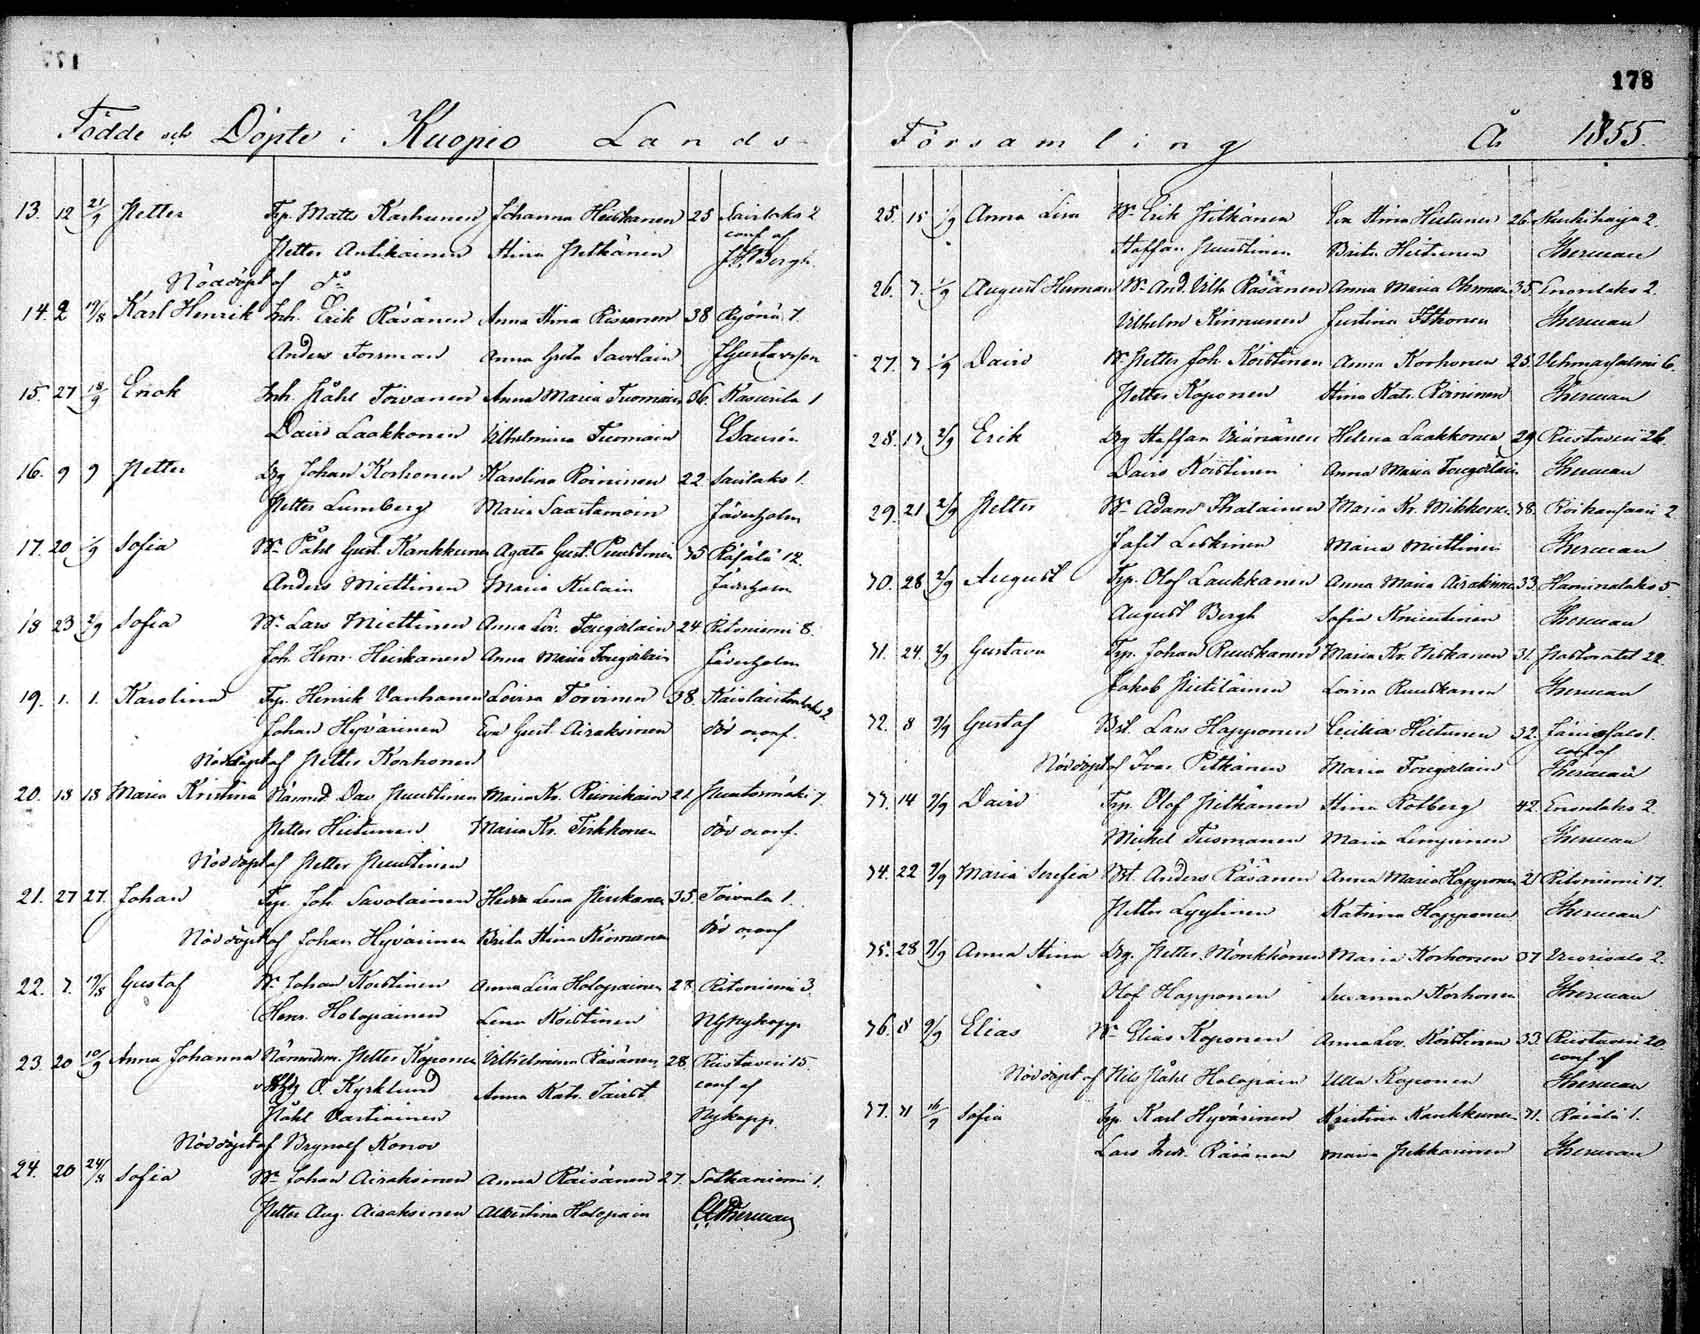 178
Födde och Döpte i Kuopio Lands-
Församling År 1855.
13. 12 21/9 Petter Tp. Matts Karhunen Johanna Heiskanen 25 Savilaks 2
conf. af
Petter Antikainen Stina Pitkänen Bergh.
Nöddöpt af do
14. 2 19/8 Karl Henrik Inh. Erik Räsänen Anna Stina Rissanen 38 Ryönä 7.
Anders Forsman Anna Greta Savolain Gustavsson
15. 27 18/9 Erick Inh. Påhl Toivanen Anna Maria Tuomain 36. Kasurila 1
David Laakkonen Vilhelmina Tuomain
16. 9 9 Petter Drg Johan Korhonen Karolina Roininen 22 Savilaks 1.
Petter Lumberg Maria Saastamoin Täderholm
17. 20 Sofia Påhl Gust. Kankkunen Agata Gust. Puustinen 35 Räsälä 12.
Anders Miettinen Maria
18 23 2/9 Sofia Lars Miettinen Anna Lov. Tougerlain 24. Ritoniemi 8.
Joh. Henr. Heiskanen Anna Maria Tougerlain
19. 1. 1. Karolina Tp. Henrik Vanhanen Lovisa Toivinen 38.
Johan Hyvärinen Eva Gust. Airaksinen conf.
Nöddöpt af Petter Korhonen
20. 18 18 Maria Kristina Dav. Puustinen Maria Kr. Reinikain 21 Puutosmäki 7
Petter Hiltunen Maria Kr. Tirkkonen conf.
Nöddöpt af Petter Puustinen
21. 27 27. Johan Tp. Joh. Savolainen Hedda Lena 35. Toivala 1.
Nöddöpt af Johan Hyvärinen Brita Stina
22. 7. 19/8 Gustaf Johan Koistinen Anna Lisa Holopainen 28 Ritoniemi 3.
Henr. Holopainen Lena Koistinen Nykopp
23. 20 10/9 Anna Johanna Petter Koponen Vilhelmina Räsänen 28. Riistavesi 15.
O. Kyrklund Anna Katr. Tavast conf af
Påhl Vartiainen Nykopp
Nöddöpt af Brynolf Konov
24. 20 24/8 Sofia Johan Airaksinen Anna Räisänen 27. Sotkaniemi 1.
Petter Aug. Airaksinen Albertina Holopain Therman
25. 15 1/9 Anna Lisa Erik Pitkänen Eva Stina Hiltunen 26
Staffan Puustinen Brita Hiltunen Therman
26. 7. 1/9 August Human And. Vilh. Räsänen Anna Maria Ohrman 35 Enonlaks 2.
Vilhelm Kinnunen Justina Itkonen Therman
27. 7 1/9 David Petter Joh. Koistinen Anna Korhonen 25. Vehmasalmi 6.
Petter Koponen Stina Katr. Roininen Therman
28. 17 2/9 Erik Drg Staffan Väänänen Helena Laakkonen 29 Riistavesi 26.
David Koistinen Anna Maria Tougerlain Therman
29. 21 2/9 Petter Adam Ihalainen Maria Kr. Mikkonen 38. Roikansaari 2
Leskinen Maria Miettinen Therman
30. 28 2/9 August Tp. Olof Laukkanen Anna Maria Airaksinen 33. Haminalaks 5.
August Bergh Sofia Therman
31. 24. 2/9 Gustava Tp. Johan Ruuskanen Maria Kr. Niskanen 31. Pastoratet 22.
Jakob Pietiläinen Lovisa Ruuskanen Therman
32. 8 9/9 Gustaf Lars Happonen Cecilia Hiltunen 32. Jännesalo 1.
conf af
Nöddöpt af Ivar Pitkänen Maria Tougerlain Therman
33. 14 9/9 David Tp. Olof Pitkänen Stina Rotberg 42. Enonlaks 2.
Mickel Tuomanen Maria Lempinen Therman
34. 22 9/9 Maria Serefia Anders Räsänen Anna Maria Happonen 21 Ritoniemi 17.
Petter Lyytinen Katrina Happonen Therman
35. 28 9/9 Anna Stina Drg. Petter Mönkkönen Maria Korhonen 37 Vuorisalo 2.
Olof Happonen Susanna Korhonen Therman
36. 8 9/9 Elias Elias Koponen Anna Lov. Koistinen 33. Riistavesi 20
conf af
Nöddöpt af Nils Påhl Holopain Ulla Koponen Therman
37. 31 16/9 Sofia Tp. Karl Hyvärinen Kristina Kankkunen 31. Räsälä 1.
Lars Fredr. Räsänen Maria Pekkarinen Therman